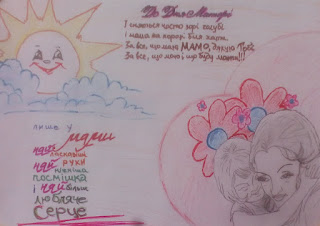 До Дня Матері
І сняться чисто зорі голубі
і маша на порозі біля хати.
За все, що маю МАМО, дякую Тобі
За все, що маю і що буду мати!!!
лише у
мами
най
ласкавіші
руки
най
ніжніша
посмішка
і найбільш
любляче
серце